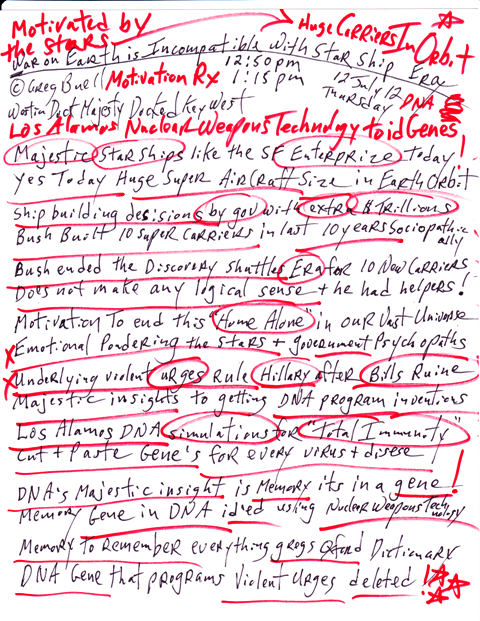 Motivated by
the STARS
Huge CARRIERS In Orbit
War on Earth is Incompatible with Star Ship Era
© Greg Buell Motivation Rx 12:50pm
1:15pm
12 July 12
Thursday DNA
Westin Dock Majesty Docked Key West
Los Alamos Nuclear Weapons Technology to id Genes!
Majestic Star Ships like the SF Enterprize Today!
Yes Today Huge Super Air Craft Size in Earth Orbit
Ship building decisions by gov with extra $ Trillions
Bush Built 10 super Carriers in last 10 years Sociopathic
ally
Bush ended the Discovery shuttles Era for 10 New Carriers
Does not make any logical sense + he had helpers!
Motivation To end this "Home Alone" in our Vast Universe
Emotional Pondering the STARS + government Psychopaths
Underlying violent urges Rule Hillary after Bills Ruine
Majestic insights to getting DNA program inventions
Los Alamos DNA simulations for "Total Immunity"
Cut + Paste Gene's for every virus + disese
DNA's Majestic insight is Memory its in a gene!
Memory Gene in DNA id'ed using Nuclear Weapons Tech
nology
Memory to Remember everything grogs Oxford Dictionary
DNA Gene that programs Violent Urges deleted!